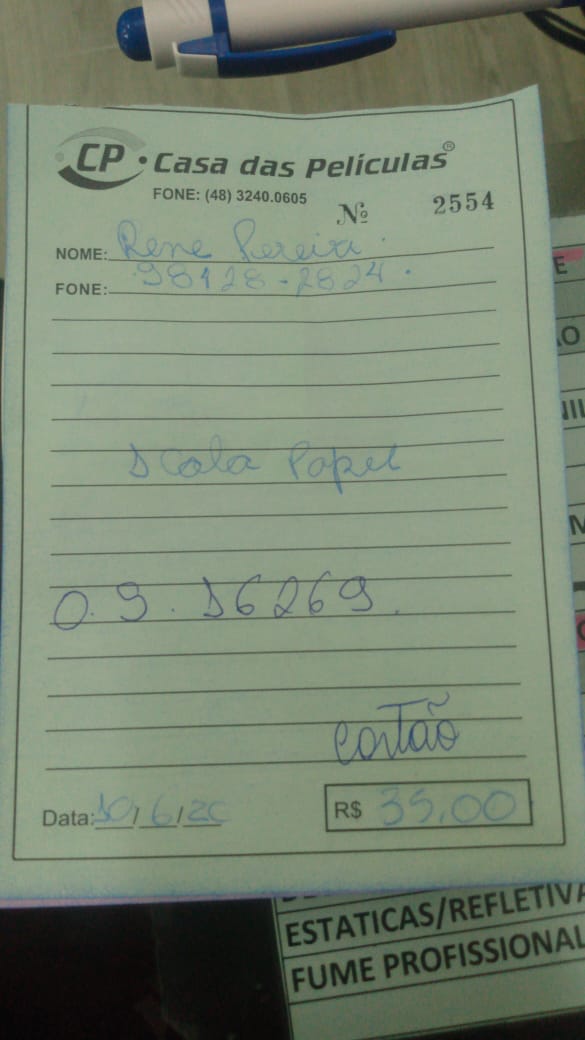 CP • Casa das Películas®
FONE: (48) 3240.0605
Nº 2554
NOME: Rene Pereira.
FONE: 98128-2824.
1 Cola Papel
O.S. 16269.
cartão
Data: 10/6/20
R$ 35,00
E
ESTATICAS/REFLETIVA
FUME PROFISSIONAL